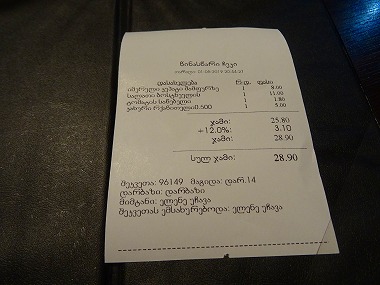 წინასწარი ჩეკი
თარიღი: 01.05.2019 20:34:20
დასახელება რ-ბ. ფასი
იმერული კუპატი მამფურზე 1 8.00
სალათი ბოსტნეულის 1 11.00
ტომატის საწებელი 1 1.80
ყახური რქაწითელი0.500 1 5.00
ჯამი: 25.80
+12.0%: 3.10
ჯამი: 28.90
სულ ჯამი: 28.90
შეკვეთა: 96149 მაგიდა: დარ.14
დარბაზი: დარბაზი
მიმტანი: ელენე უჩავა
შეკვეთას ემსახურებოდა: ელენე უჩავა